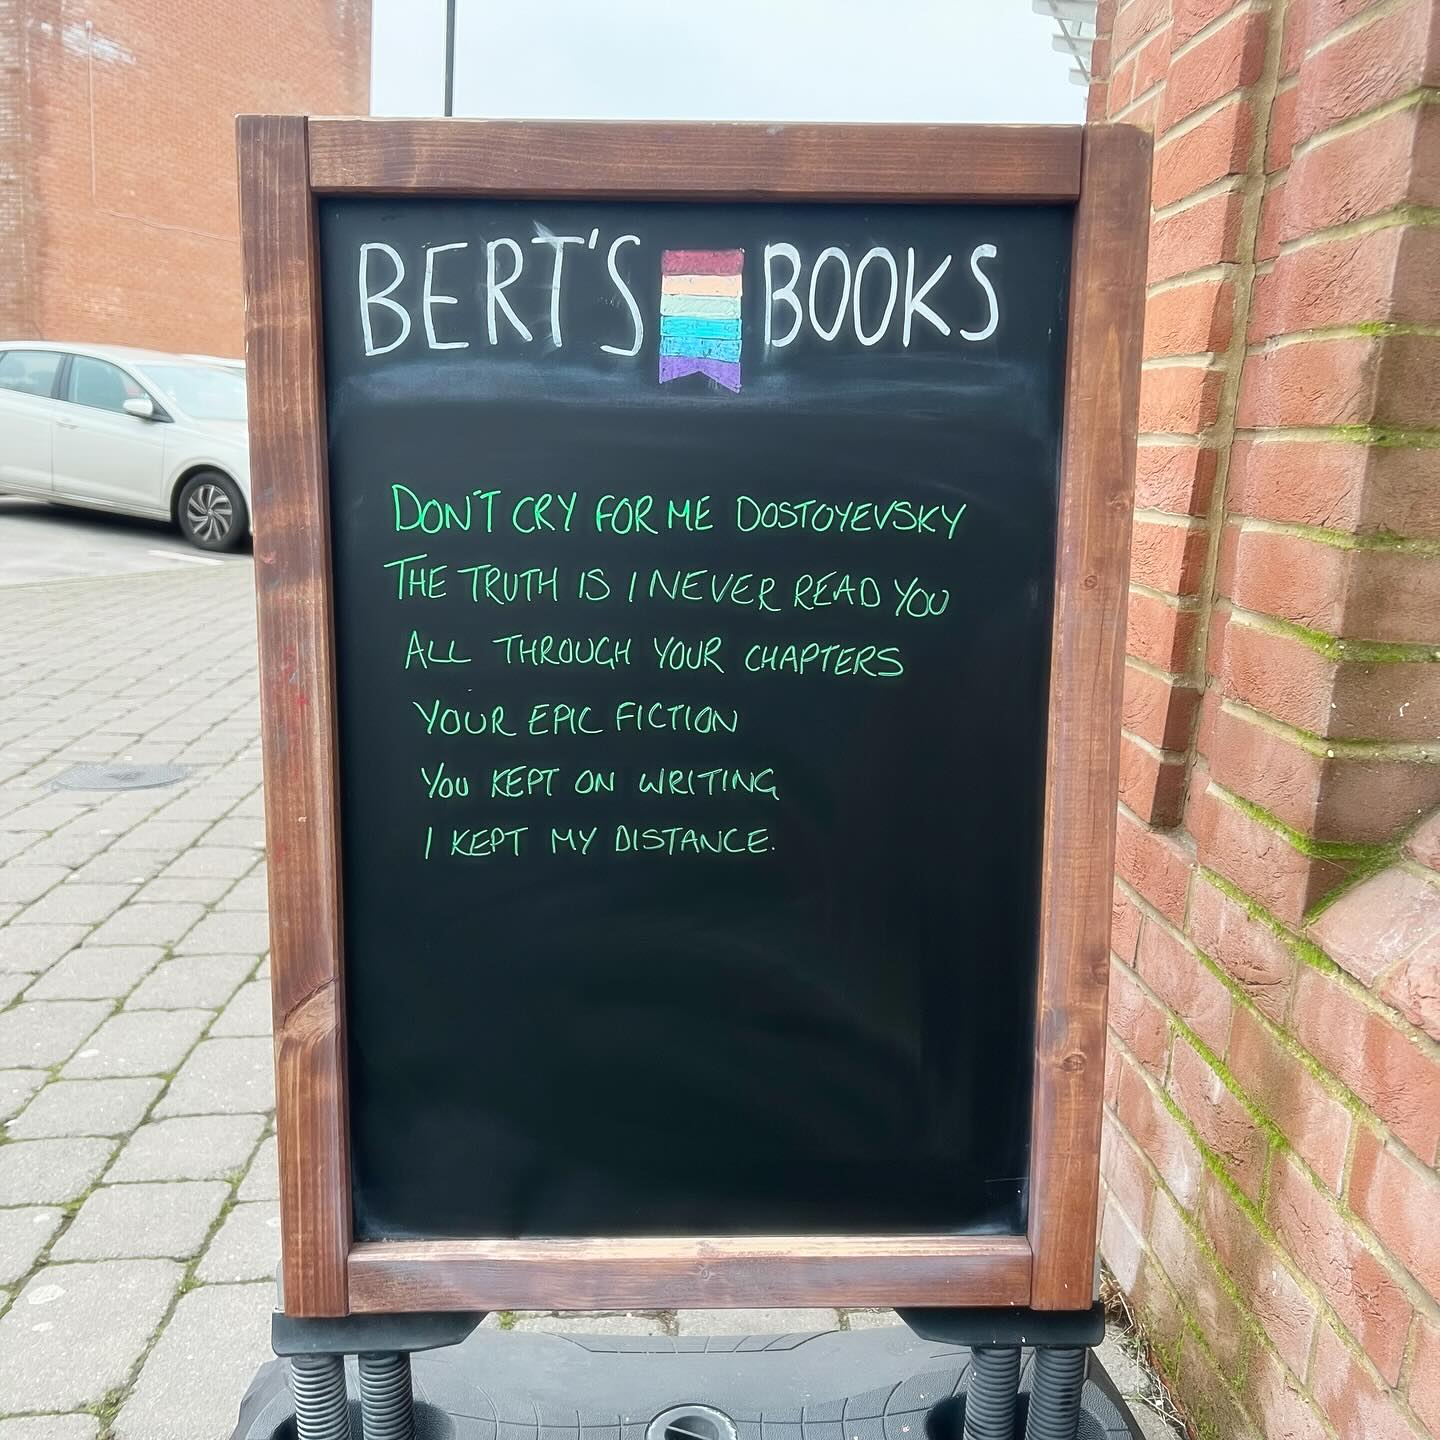 BERT'S BOOKS
DON'T CRY FOR ME DOSTOYEVSKY
THE TRUTH IS I NEVER READ YOU
ALL THROUGH YOUR CHAPTERS
YOUR EPIC FICTION
YOU KEPT ON WRITING
I KEPT MY DISTANCE.